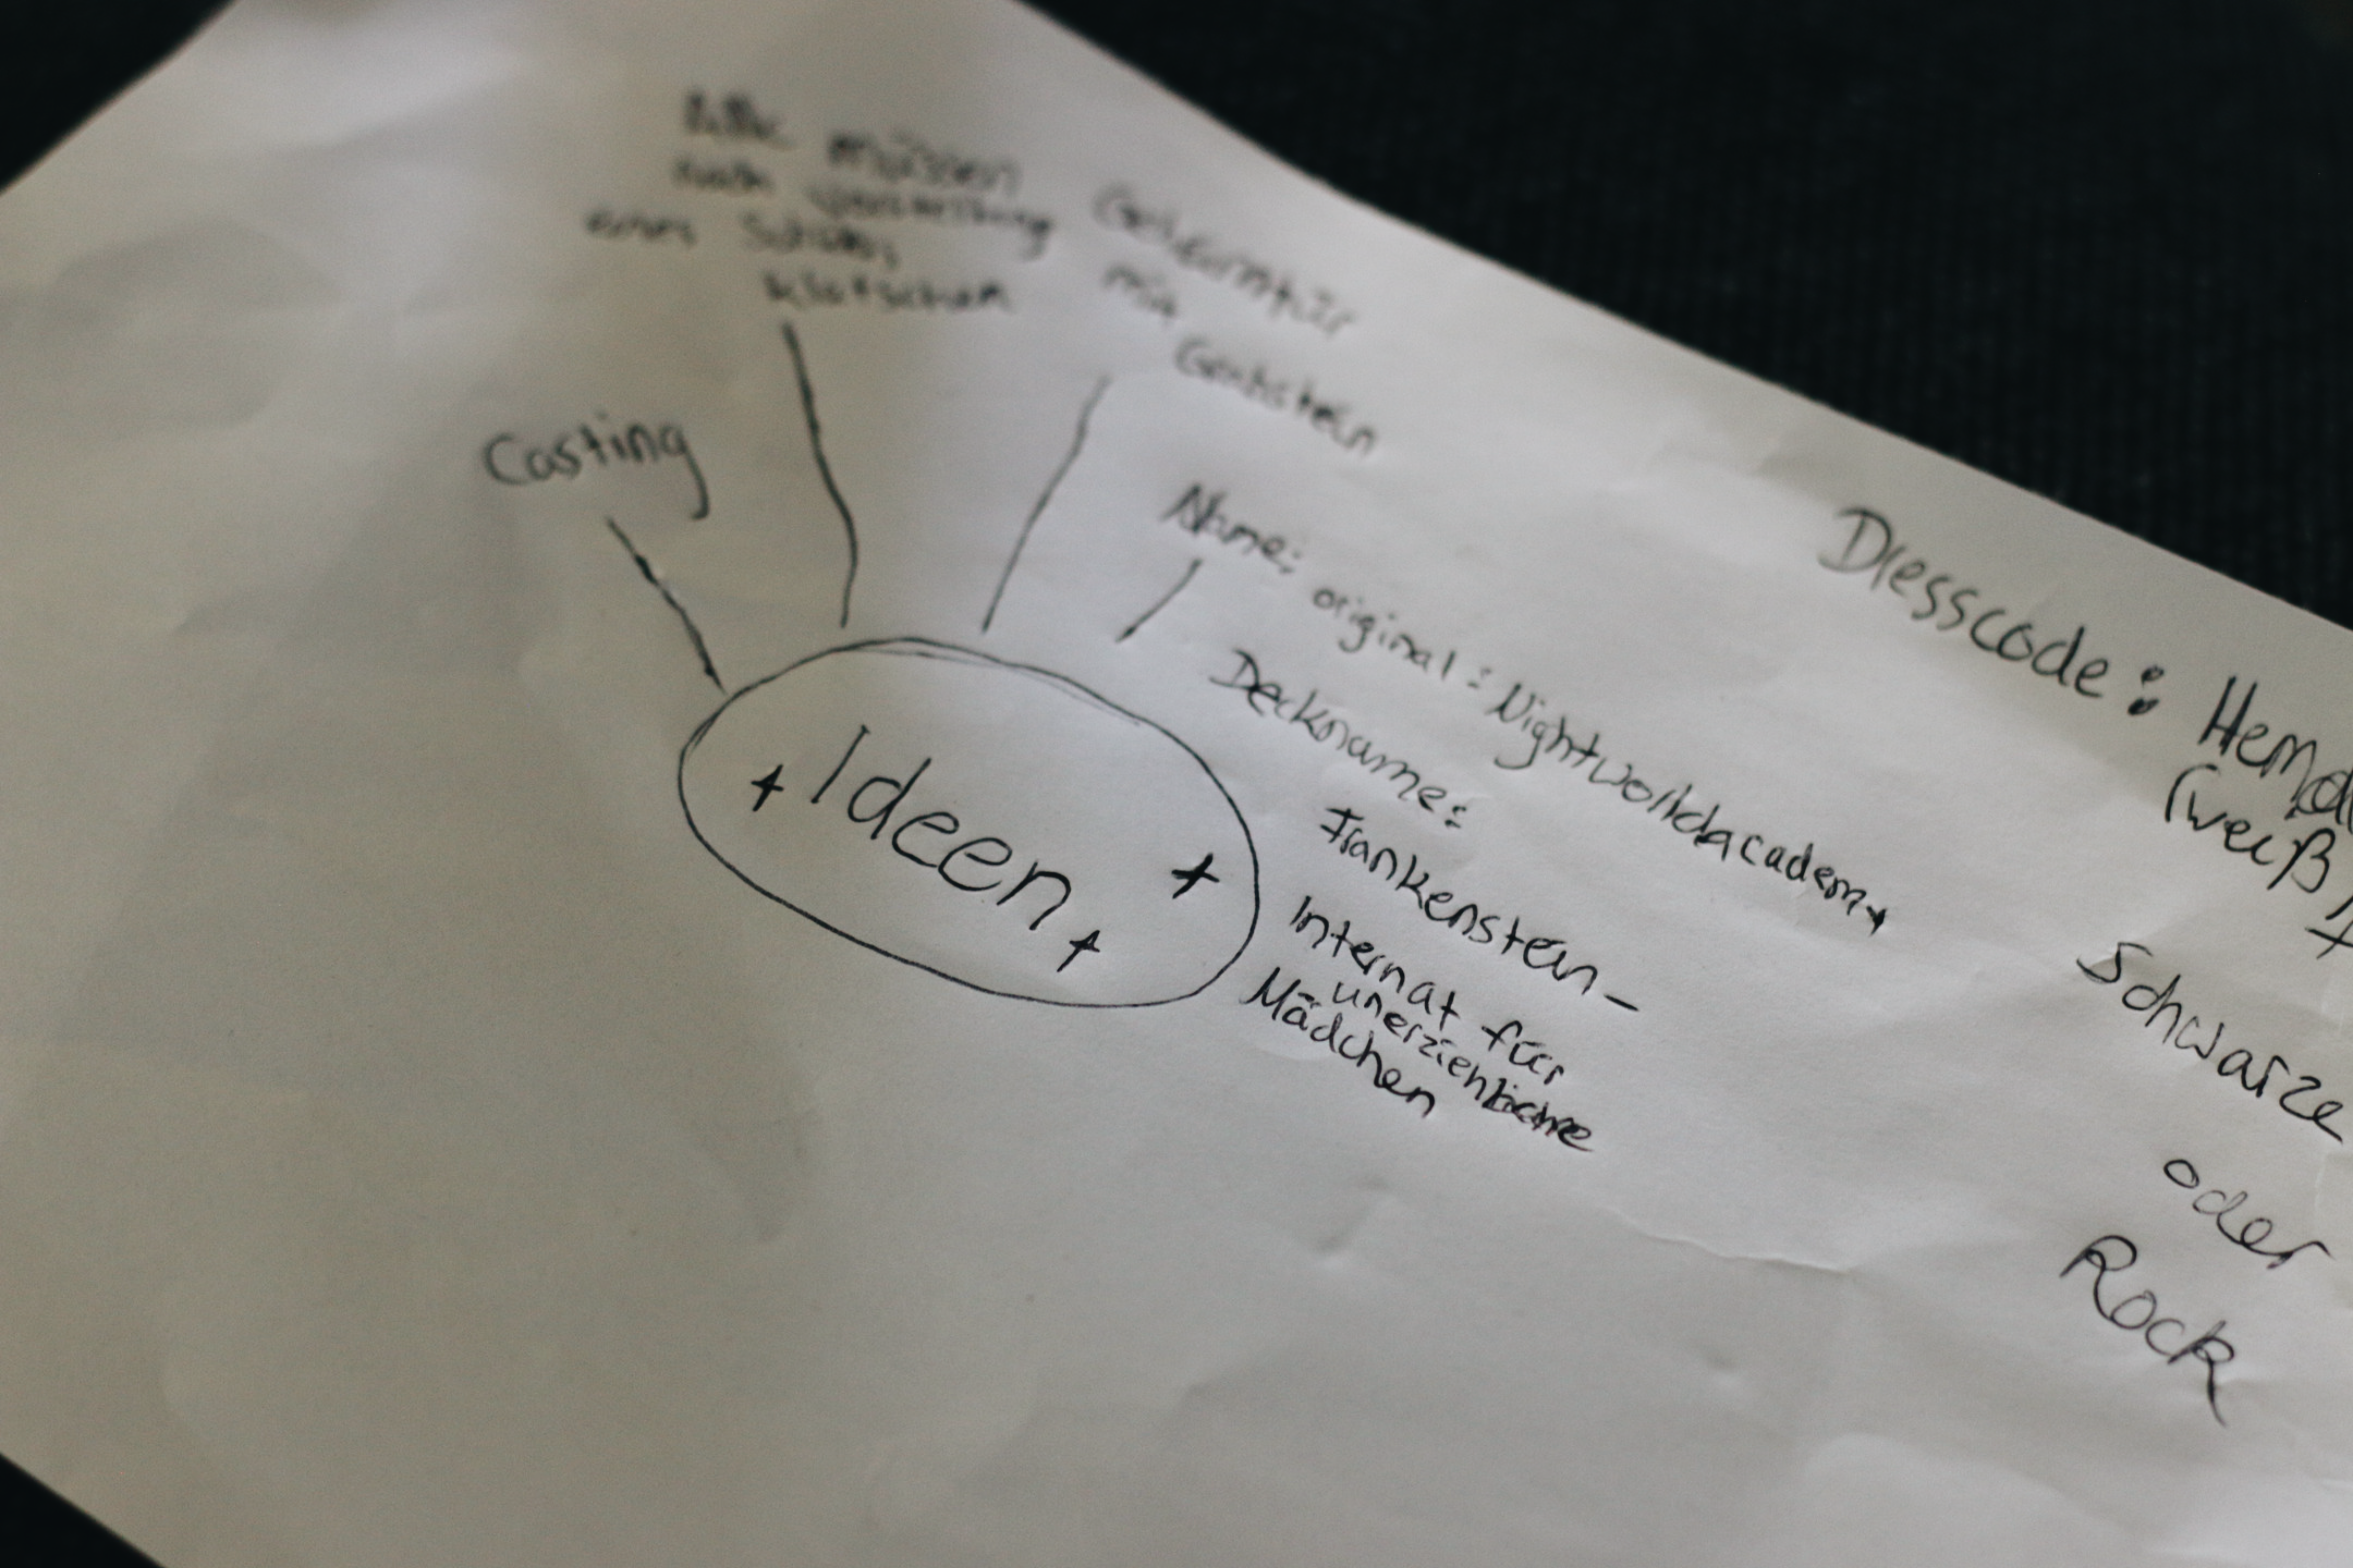 Alle müssen
nach
eines
klatschen
Geheimtür
mit
Casting
Name: original: Nightworldacademy
Deckname:
Frankenstein-
Internat für
unerziehbare
Mädchen
Ideen
Dresscode: Hemd
(weiß)
Schwarze
oder
Rock